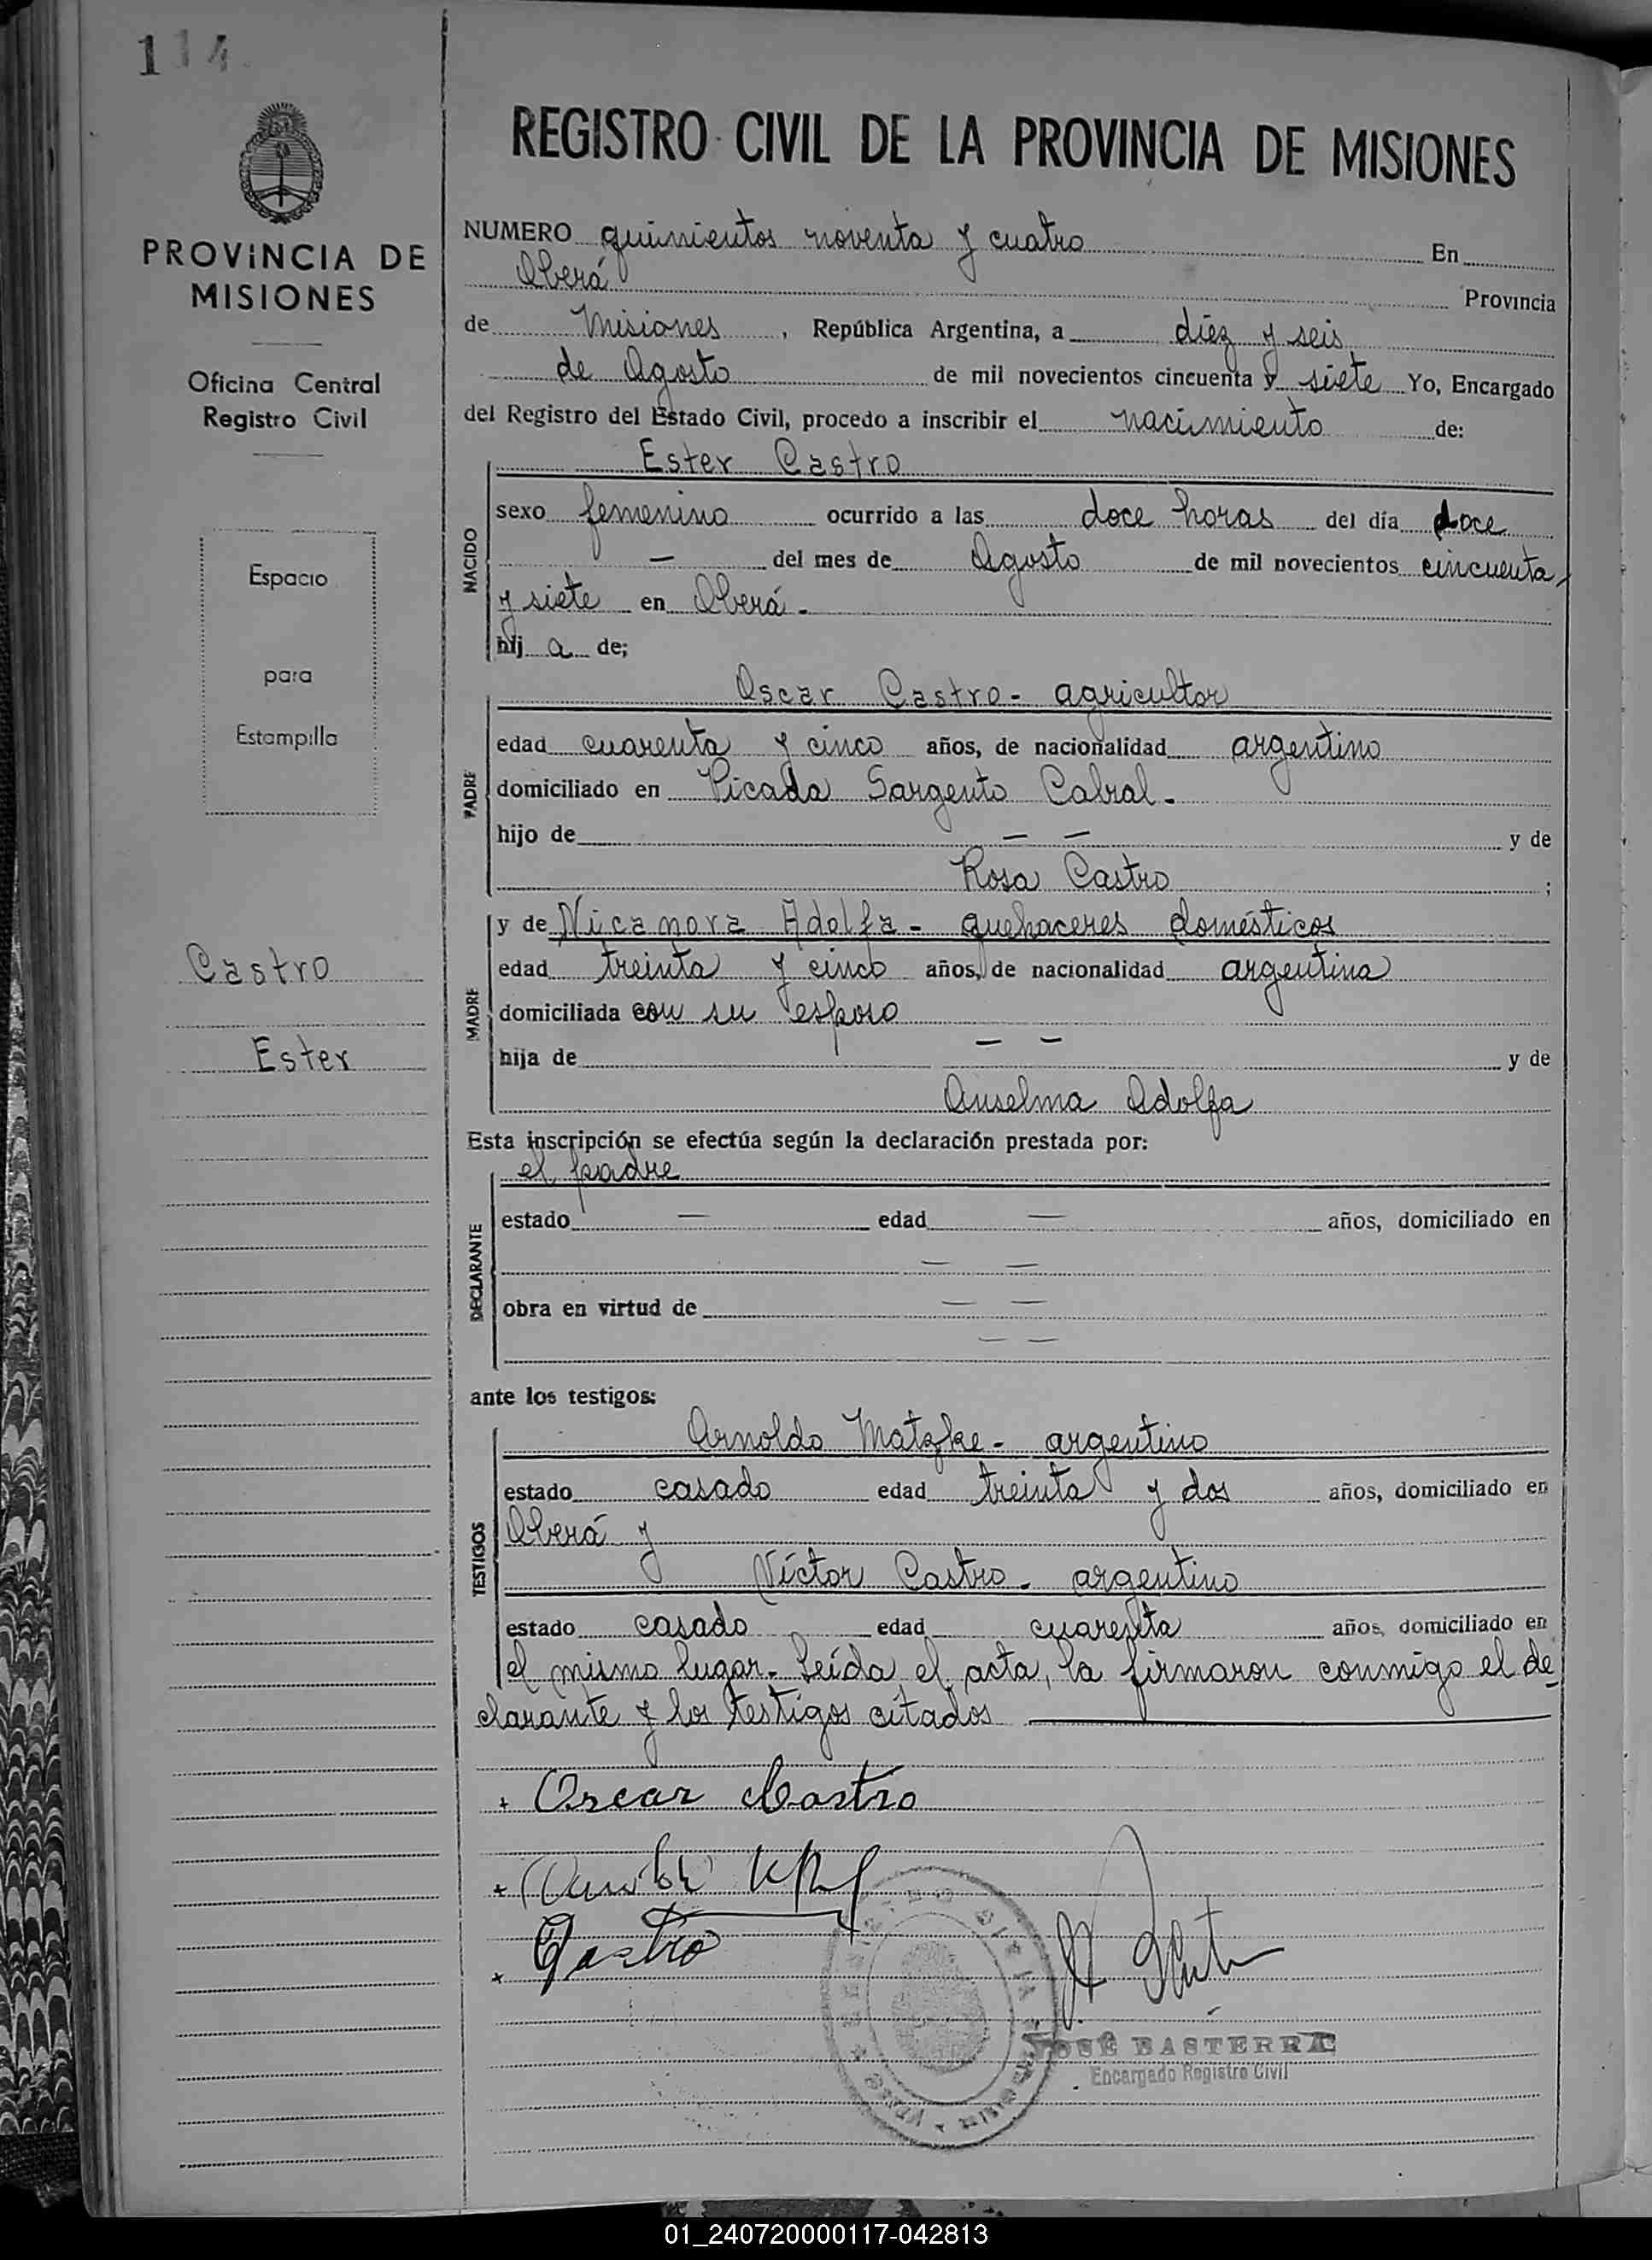 114
REGISTRO CIVIL DE LA PROVINCIA DE MISIONES
PROVINCIA DE
MISIONES
Oficina Central
Registro Civil
Espacio
para
Estampilla
Castro
Ester
NUMERO quinientos noventa y cuatro En
Oberá Provincia
de Misiones, República Argentina, a diez y seis
de Agosto de mil novecientos cincuenta y siete Yo, Encargado
del Registro del Estado Civil, procedo a inscribir el nacimiento de:
NACIDO
Ester Castro
sexo femenino ocurrido a las doce horas del día doce
— del mes de Agosto de mil novecientos cincuenta
y siete en Oberá.-
hij a de;
PADRE
Oscar Castro - agricultor
edad cuarenta y cinco años, de nacionalidad argentino
domiciliado en Picada Sargento Cabral.-
hijo de — — y de
Rosa Castro ;
MADRE
y de Nicanora Adolfa - quehaceres domésticos
edad treinta y cinco años, de nacionalidad argentina
domiciliada con su esposo
hija de — — y de
Anselma Adolfa
Esta inscripción se efectúa según la declaración prestada por:
DECLARANTE
el padre
estado — edad — años, domiciliado en
— —
obra en virtud de — —
— —
ante los testigos:
TESTIGOS
Arnoldo Matzke - argentino
estado casado edad treinta y dos años, domiciliado en
Oberá y
Víctor Castro - argentino
estado casado edad cuarenta años, domiciliado en
el mismo lugar.- Leída el acta, la firmaron conmigo el de-
clarante y los testigos citados
+ Oscar Castro
+
+ Castro
JOSÉ BASTERRA
Encargado Registro Civil
01_240720000117-042813